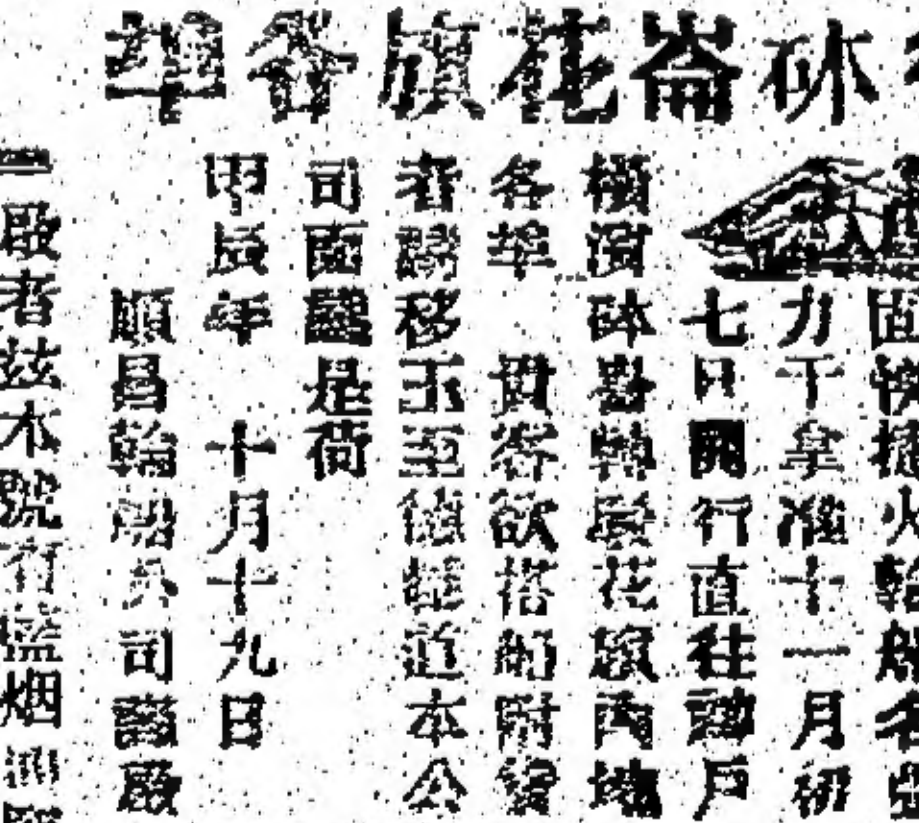 砵崙花旗各埠
固快捷火輪船名
力千拿准十一月初
七日開行直往神戶
橫濱砵崙轉駁花旗內地
各埠 貴客欲搭船附貨
者請移玉至德輔道本公
司面議是荷
甲辰年 十月十九日
順昌輪船公司謹啟
啟者茲本號有